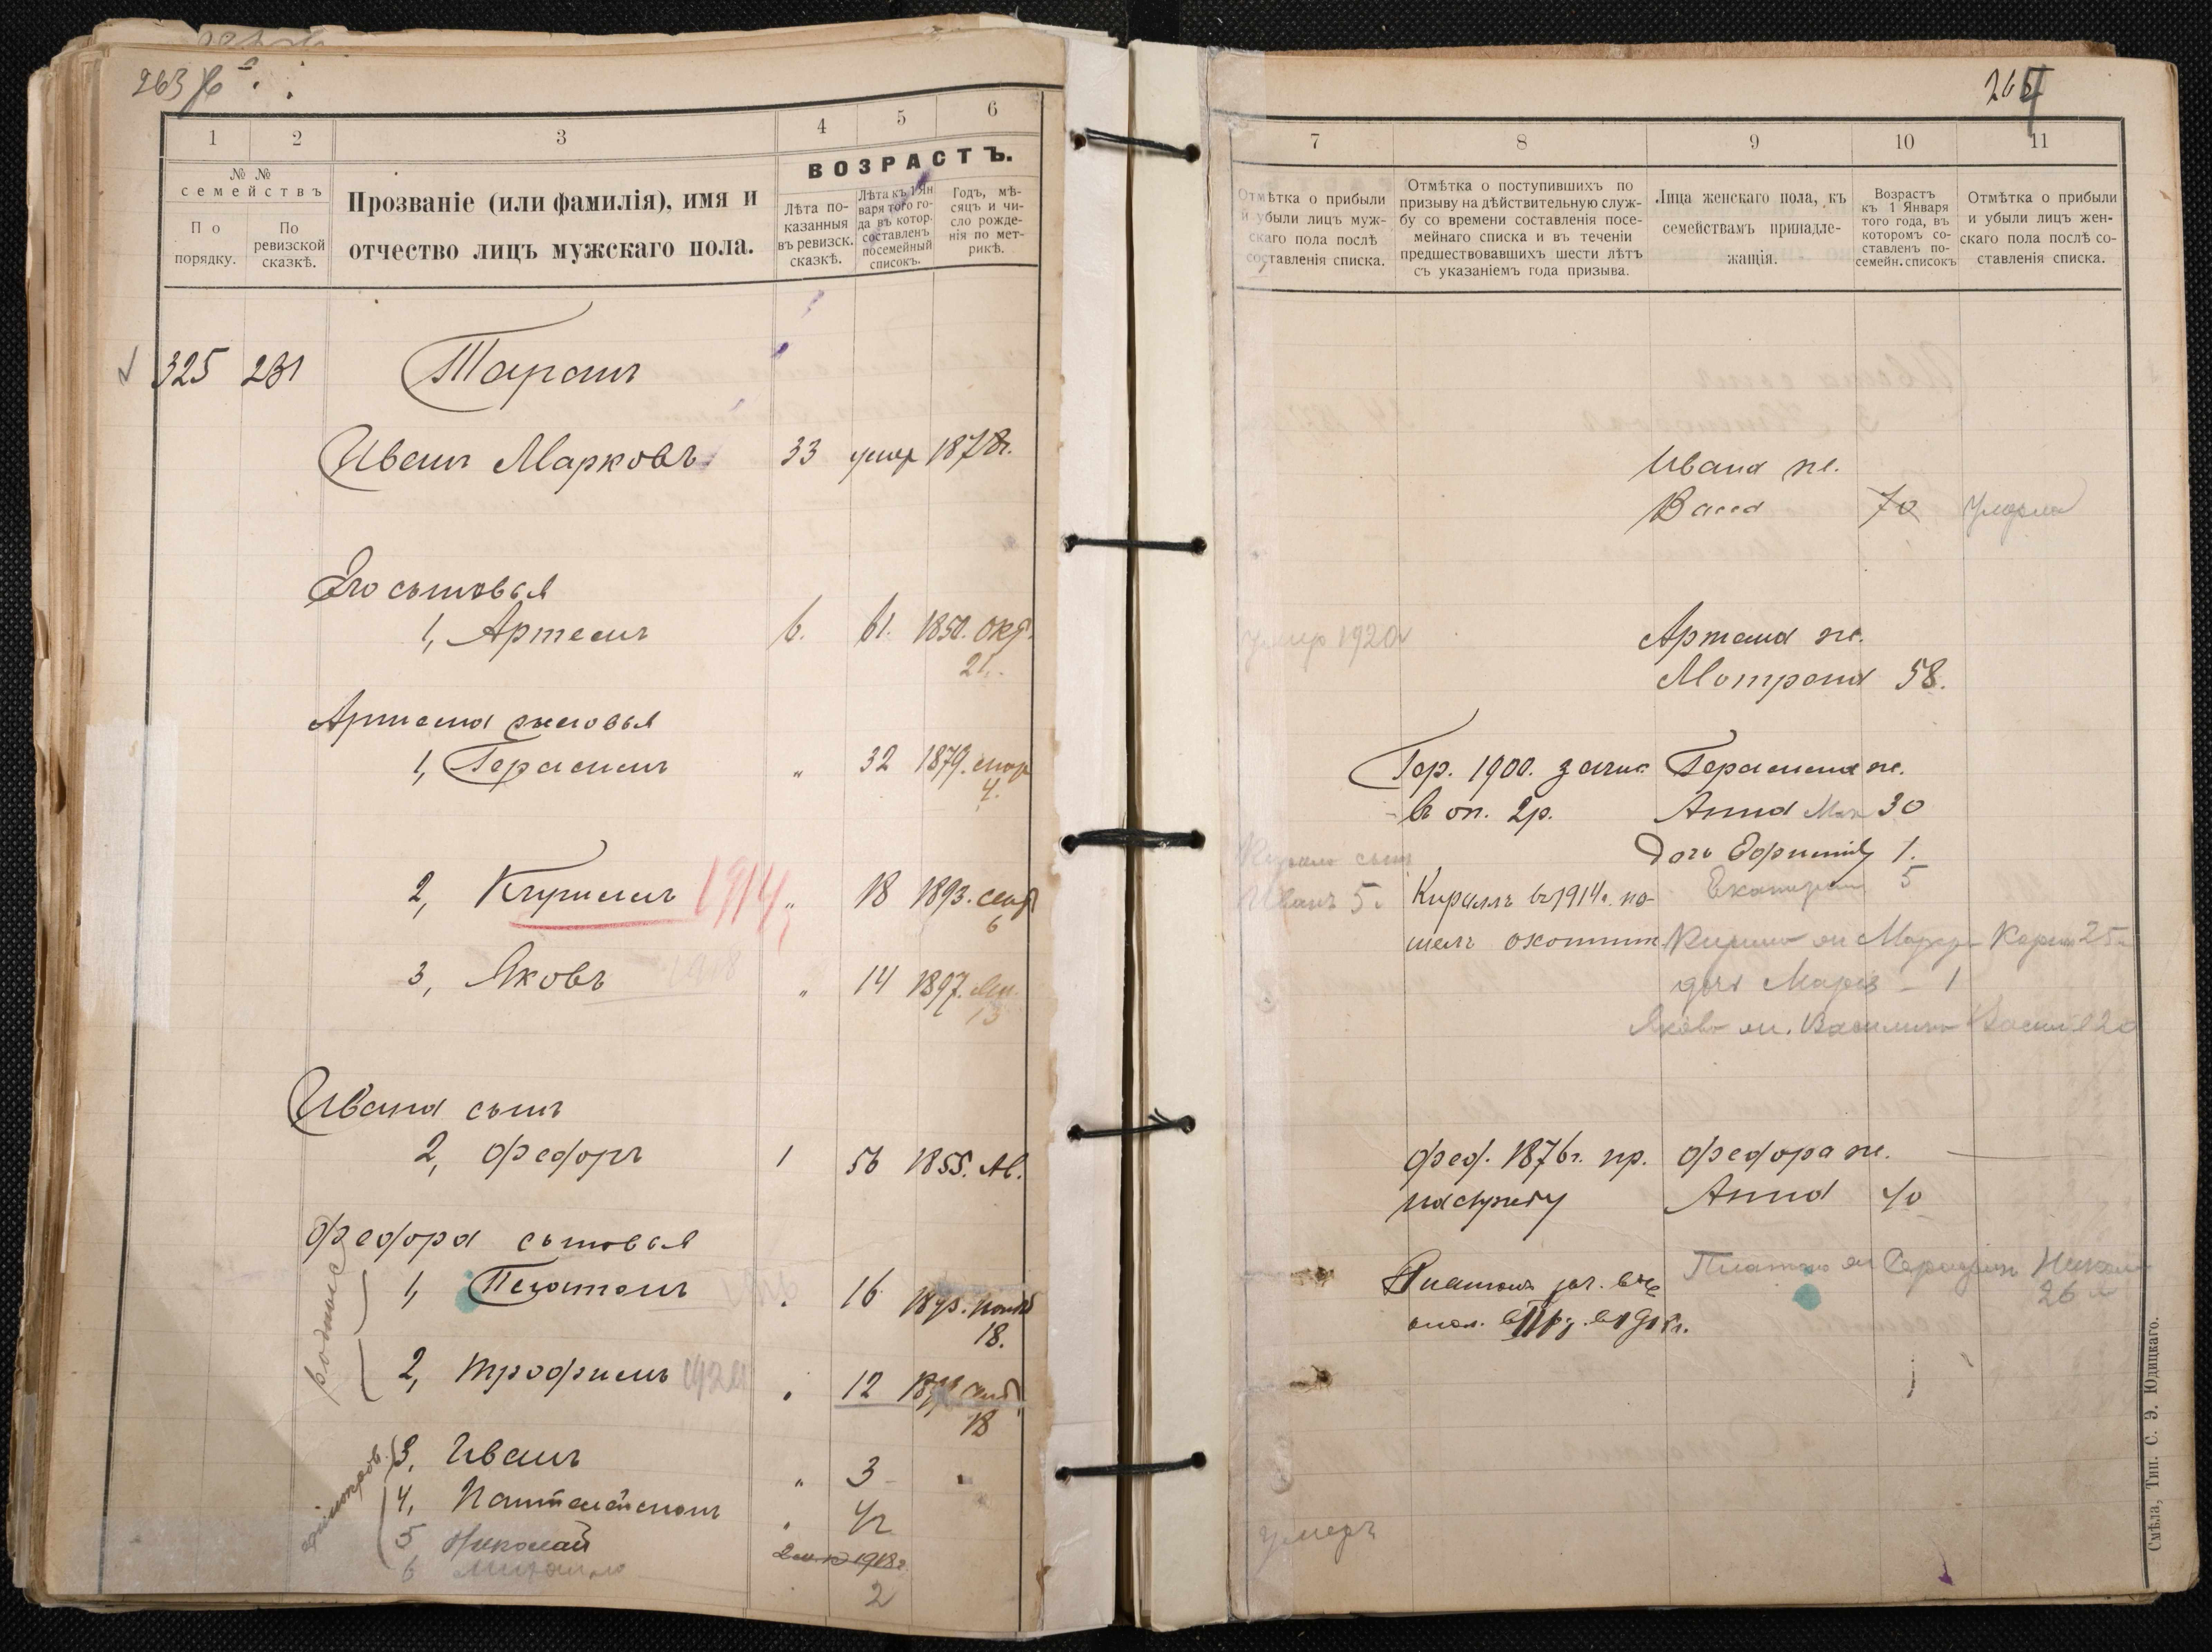 263
1 2 3 4 5 6
№ №
семействъ
По порядку.
По ревизской сказкѣ.
Прозваніе (или фамилія), имя и
отчество лицъ мужскаго пола.
ВОЗРАСТЪ.
Лѣта по-
казанныя
въ ревизск.
сказкѣ.
Лѣта къ 1 Ян
варя того го-
да въ котор.
составленъ
посемейный
списокъ.
Годъ, мѣ-
сяцъ и чи-
сло рожде-
нія по мет-
рикѣ.
325 231 Таранъ
Иванъ Марковъ 33 умер 1878г.
Его сыновья
1, Артемъ 6. 61. 1850. окт.
21.
Артема сыновья
1, Герасимъ " 32 1879. мар
4.
2, Кирилъ 1914 " 18 1893. сент
6
3, Яковъ 1918 " 14 1897.
13
Ивана сынъ
2, Федоръ 1 56 1855. Ав.
Федора сыновья
1, Платонъ 16
18.
2, Трофимъ 12
18
3, Иванъ " 3
4, Пантелеймонъ 1/2
5 Николай 1918
6 Михаило 2
264
7 8 9 10 11
Отмѣтка о прибыли
и убыли лицъ муж-
скаго пола послѣ
составленія списка.
Отмѣтка о поступившихъ по
призыву на дѣйствительную служ-
бу со времени составленія посе-
мейнаго списка и въ теченіи
предшествовавшихъ шести лѣтъ
съ указаніемъ года призыва.
Лица женскаго пола, къ
семействамъ принадле-
жащія.
Возрастъ
къ 1 Января
того года, въ
которомъ со-
ставленъ по-
семейн. списокъ
Отмѣтка о прибыли
и убыли лицъ жен-
скаго пола послѣ со-
ставленія списка.
Ивана ж.
Васса 70 умерла
умир 1920 Артема ж.
Мотрона 58.
Гер. 1900. зачис Герасима ж.
въ оп. 2р. Анна 30
дочь 1.
Кирило сын
Иванъ 5 Кириллъ въ 1914г. по- Екатерин 5
шелъ охотник Кирило 25
дочь Марія - 1
Якова ж. Василина 20
Фед. 1876г. пр. Федора ж.
на службу Анна 40
Платонъ зач.
26
умеръ
Смѣла, Тип. С. Э. Юдицкаго.